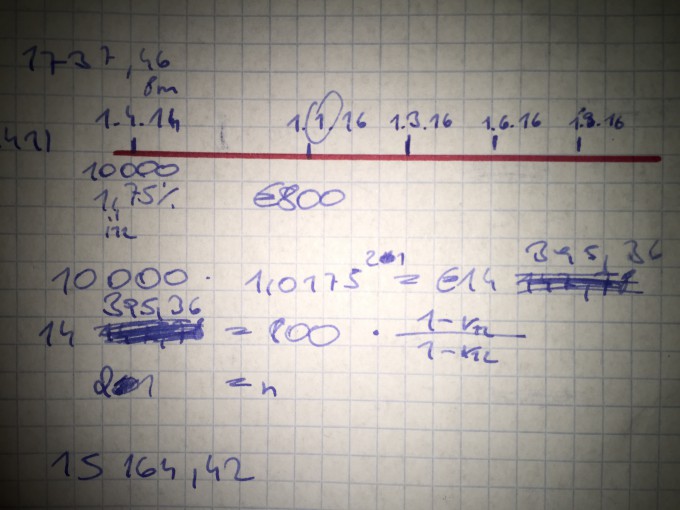 1737,46
1.4.14 1.1.16 1.3.16 1.6.16 1.9.16
421)
10000
1,75% €800
10000 · 1,0175^21 = €14 395,36
14 395,36 = 800 · 1-v / 1-v
21 = n
15 164,42